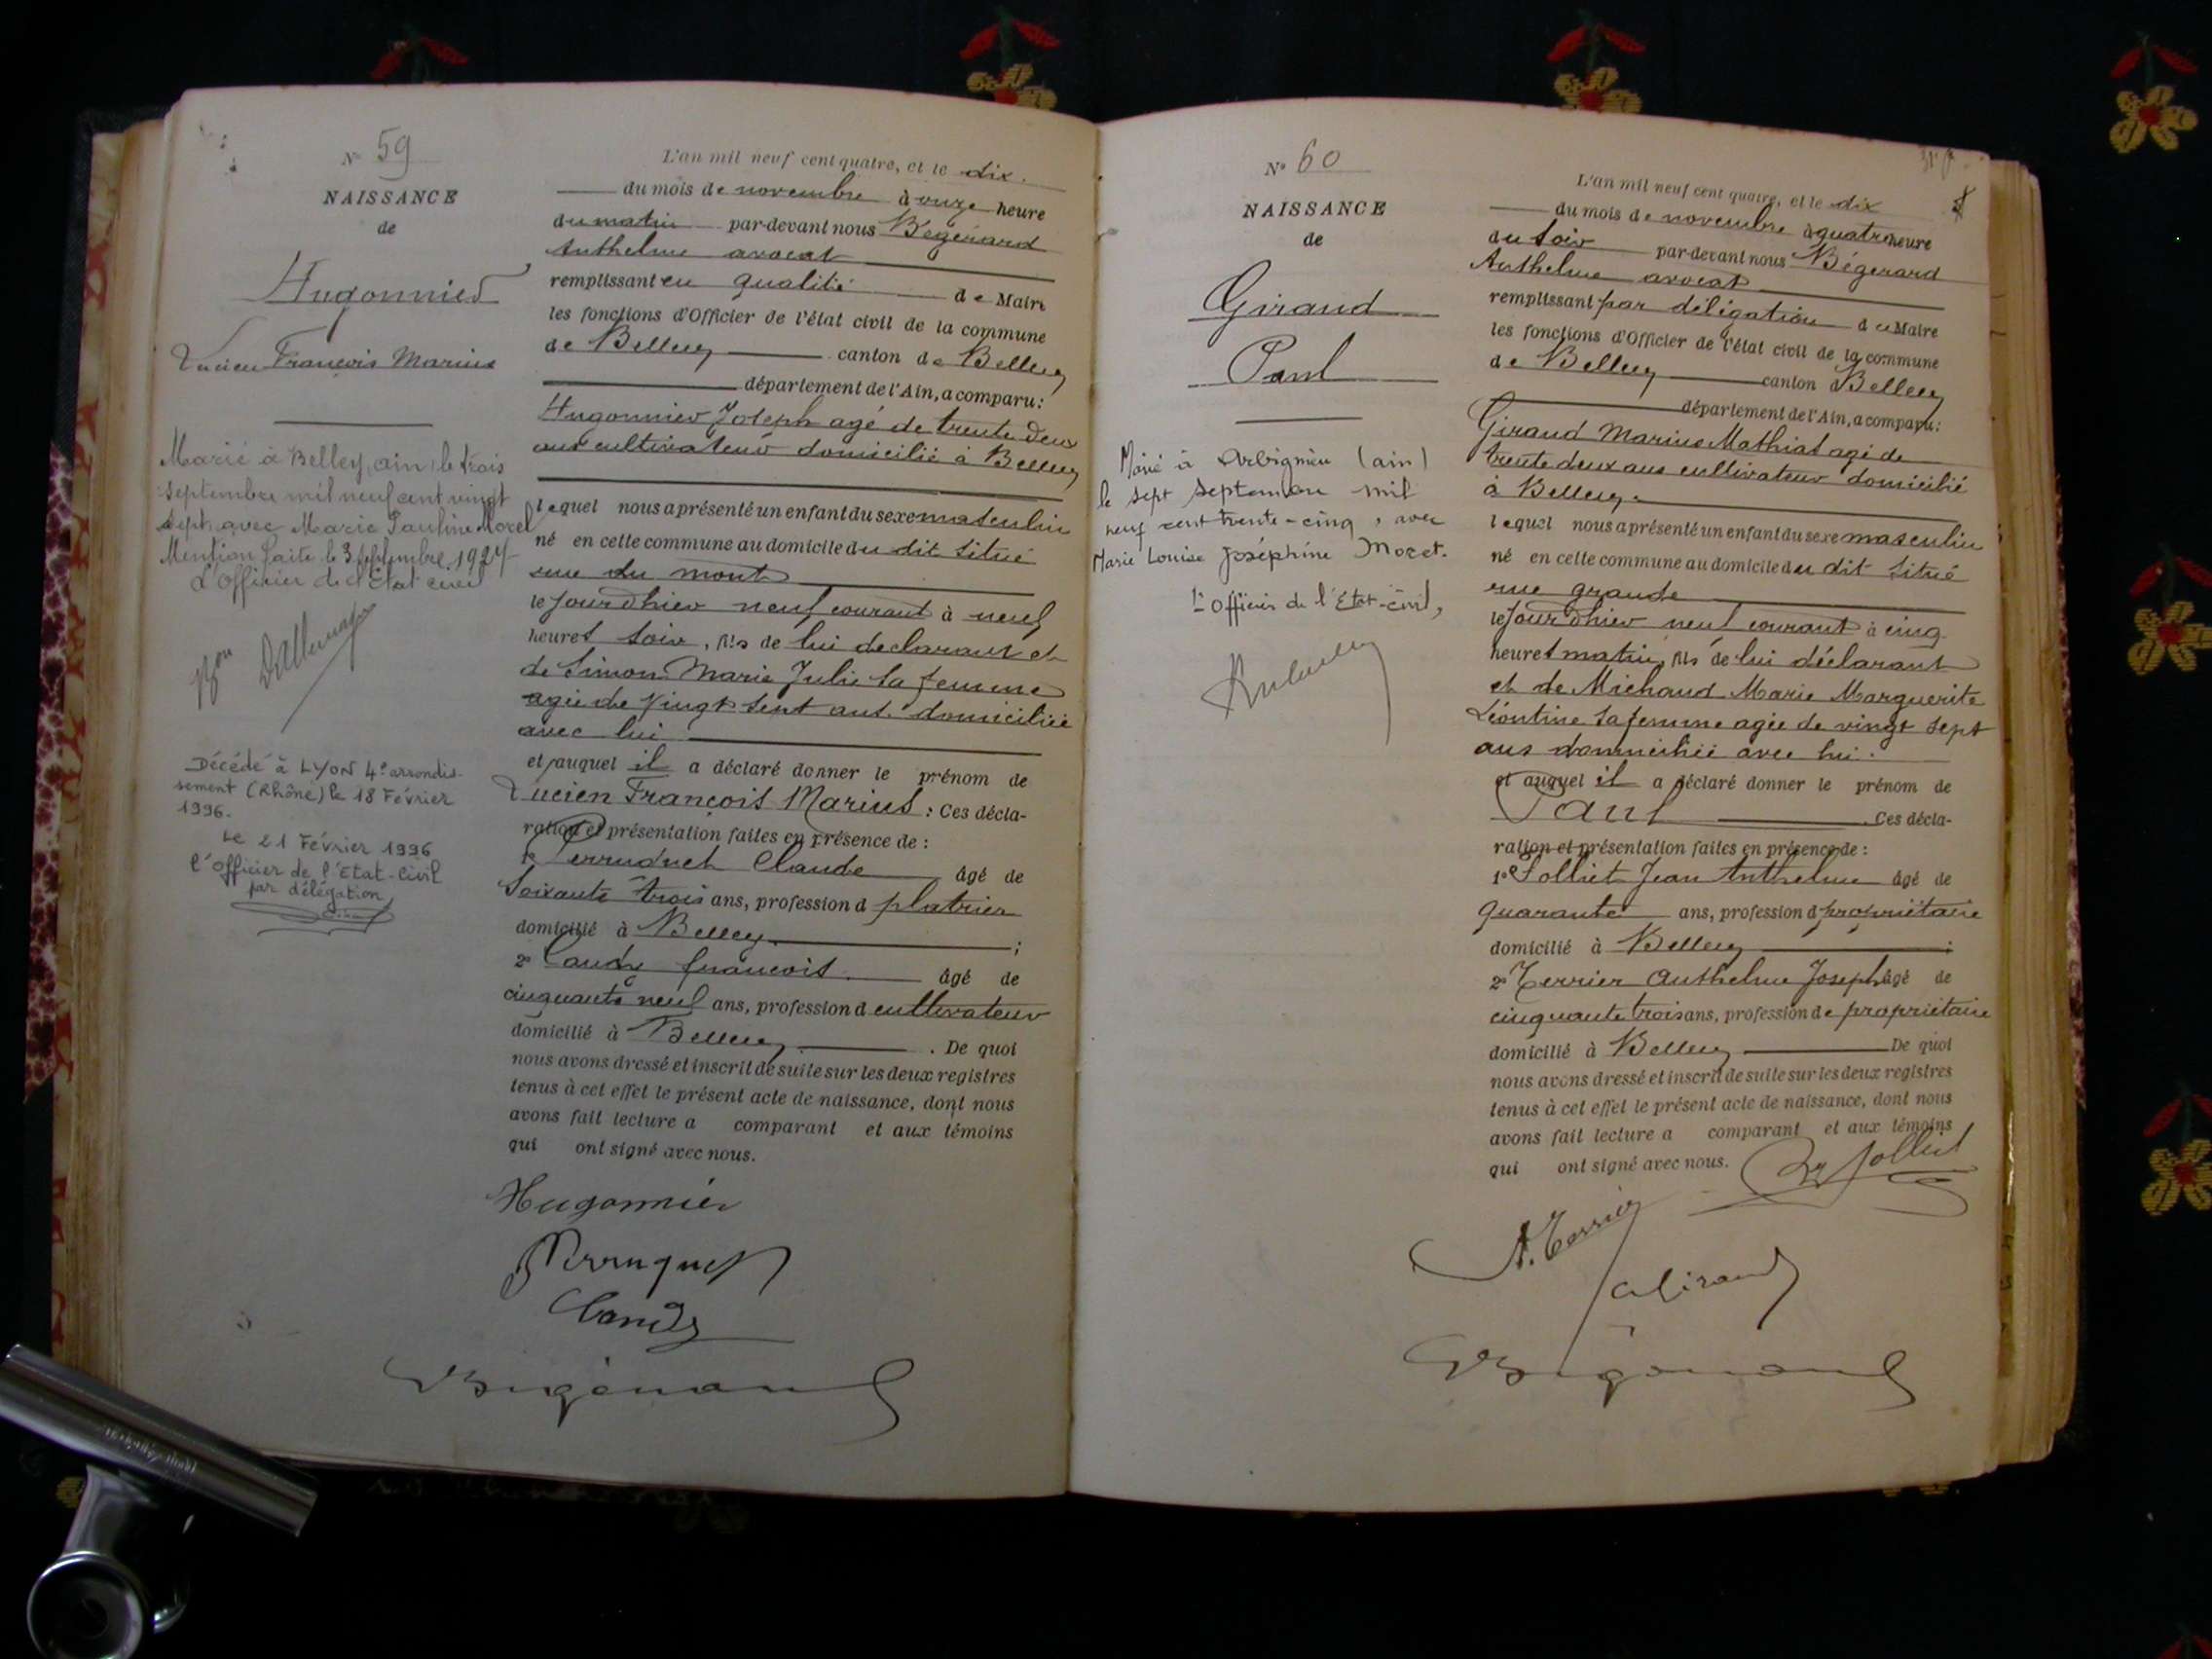 N° 59
NAISSANCE
de
Hugonnier
Lucien François Marius
Marié à Belley, ain, le trois
septembre mil neuf cent vingt
sept avec Marie Pauline Morel
Mention faite le 3 septembre 1927
L'Officier de l'Etat civil
Décédé à LYON 4e arrondis-
sement (Rhône) le 18 Février
1996.
Le 21 Février 1996
l'Officier de l'Etat-Civil
par délégation
L'an mil neuf cent quatre, et le dix
du mois de novembre à onze heure
du matin par-devant nous Bégerard
Anthelme avocat
remplissant en qualité de Maire
les fonctions d'Officier de l'état civil de la commune
de Belley canton de Belley
département de l'Ain, a comparu :
Hugonnier Joseph agé de trente deux
ans cultivateur domicilié à Belley
lequel nous a présenté un enfant du sexe masculin
né en cette commune au domicile du dit situé
rue du mont
le jour d'hier neuf courant à neuf
heures soir, fils de lui declarant et
de Simon Marie Julie sa femme
agée de vingt sept ans domiciliée
avec lui
et auquel il a déclaré donner le prénom de
Lucien François Marius : Ces décla-
ration et présentation faites en présence de :
1° Perruquet Claude âgé de
soixante trois ans, profession d platrier
domicilié à Belley ;
2° françois âgé de
cinquante neuf ans, profession d cultivateur
domicilié à Belley . De quoi
nous avons dressé et inscrit de suite sur les deux registres
tenus à cet effet le présent acte de naissance, dont nous
avons fait lecture a comparant et aux témoins
qui ont signé avec nous.
Hugonnier
Perruquet
Bégerard
N° 60
NAISSANCE
de
Giraud
Paul
Marié à Arbignieu (ain)
le sept septembre mil
neuf cent trente-cinq, avec
Marie Louise Joséphine Mocet.
L'officier de l'Etat-civil,
L'an mil neuf cent quatre, et le dix
du mois de novembre à quatre heure
du soir par-devant nous Bégerard
Anthelme avocat
remplissant par délégation du Maire
les fonctions d'Officier de l'état civil de la commune
de Belley canton d Belley
département de l'Ain, a comparu :
Giraud Marius Mathias agé de
trente deux ans cultivateur domicilié
à Belley.
lequel nous a présenté un enfant du sexe masculin
né en cette commune au domicile du dit situé
rue grande
le jour d'hier neuf courant à cinq
heures matin, fils de lui déclarant
et de Michaud Marie Marguerite
Léontine sa femme agée de vingt sept
ans domiciliée avec lui.
et auquel il a déclaré donner le prénom de
Paul Ces décla-
ration et présentation faites en présence de :
1° Solliet Jean Anthelme âgé de
quarante ans, profession d propriétaire
domicilié à Belley ;
2° Terrier Anthelme Joseph âgé de
cinquante trois ans, profession de propriétaire
domicilié à Belley De quoi
nous avons dressé et inscrit de suite sur les deux registres
tenus à cet effet le présent acte de naissance, dont nous
avons fait lecture a comparant et aux témoins
qui ont signé avec nous.
Solliet
A. Terrier
Giraud
Bégerard